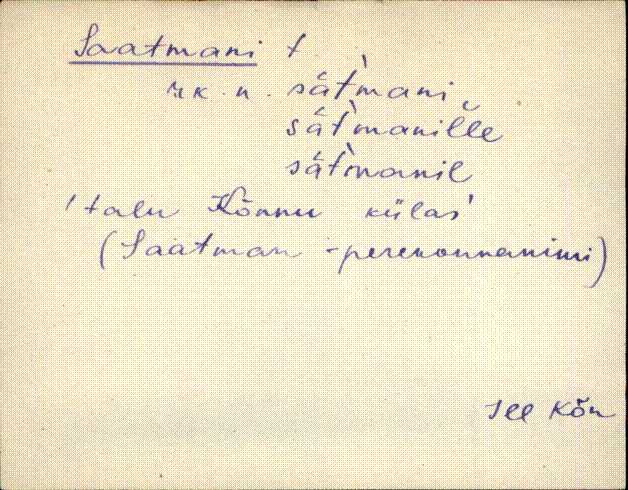 Saatmani t.
rk. n. sàt̀mani
sàt̀manil̆l̆e
sàt̀manil
/talu Kõnnu külas/
(Saatman - perekonnanimi)
Jee Kõn